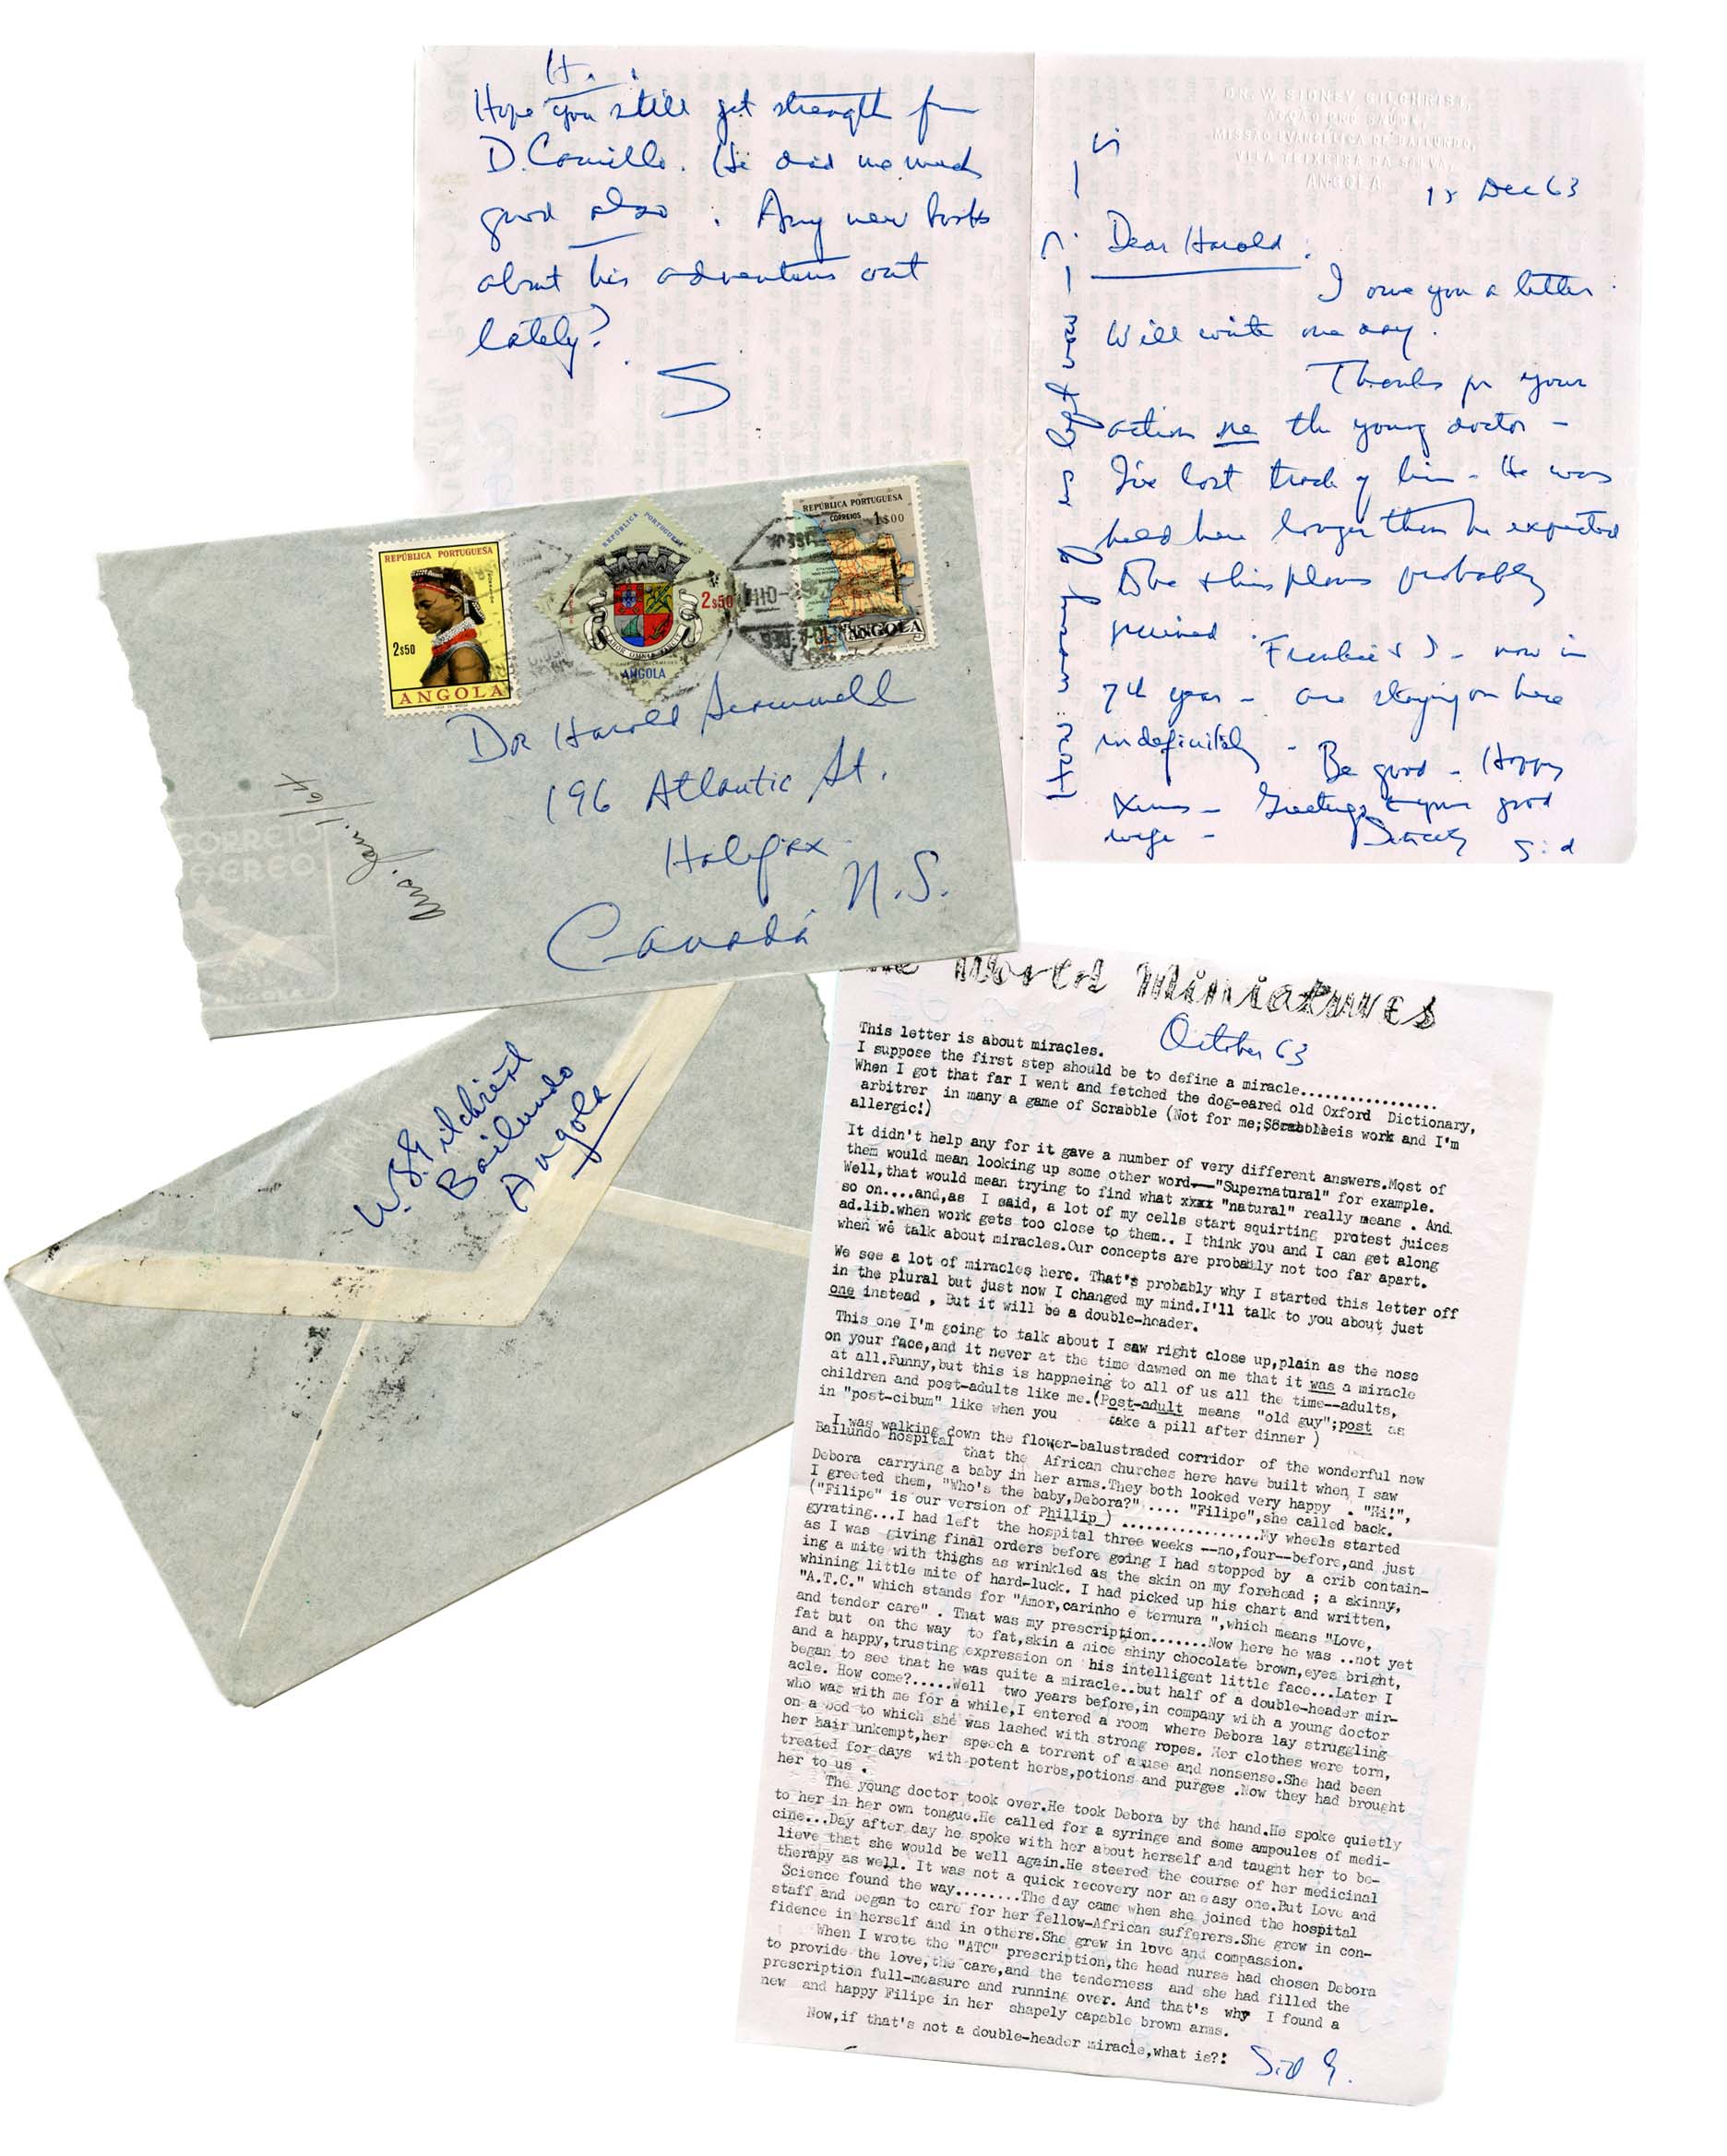 H.
Hope you still get strength from
D. Camillo. He did me much
good also. Any new books
about his adventures out
lately?
S
DR. W. SIDNEY GILCHRIST,
ACÇÃO PRÓ SAÚDE,
MISSÃO EVANGÉLICA DE BAILUNDO,
VILA TEIXEIRA DA SILVA,
ANGOLA
Dec 63
Dear Harold:
I owe you a letter
Will write one day.
Thanks for your
action re the young doctor -
I've lost track of him - He was
held here longer than he expected
to be & his plans probably
ruined. Frankie & I - now in
7th year - are staying on here
indefinitely - Be good - Happy
Xmas - Greetings to your good
wife - Sincerely Sid
REPÚBLICA PORTUGUESA
2$50
ANGOLA
REPÚBLICA PORTUGUESA
2$50
ANGOLA
REPÚBLICA PORTUGUESA
CORREIOS 1$00
ANGOLA
DR Harold Scammell
196 Atlantic St.
Halifax
N.S.
Canada
Ans. Jan. 1/64
CORREIO
AEREO
ANGOLA
W.S. Gilchrist
Bailundo
Angola
Miniatures
October 63
This letter is about miracles.
I suppose the first step should be to define a miracle.................
When I got that far I went and fetched the dog-eared old Oxford Dictionary,
arbitrer in many a game of Scrabble (Not for me;Scrabble is work and I'm
allergic!)
It didn't help any for it gave a number of very different answers.Most of
them would mean looking up some other word—"Supernatural" for example.
Well,that would mean trying to find what xxxx "natural" really means . And
so on....and,as I said, a lot of my cells start squirting protest juices
ad.lib.when work gets too close to them.. I think you and I can get along
when we talk about miracles.Our concepts are probably not too far apart.
We see a lot of miracles here. That's probably why I started this letter off
in the plural but just now I changed my mind.I'll talk to you about just
one instead , But it will be a double-header.
This one I'm going to talk about I saw right close up,plain as the nose
on your face,and it never at the time dawned on me that it was a miracle
at all.Funny,but this is happneing to all of us all the time--adults,
children and post-adults like me.(Post-adult means "old guy";post as
in "post-cibum" like when you take a pill after dinner )
I was walking down the flower-balustraded corridor of the wonderful new
Bailundo hospital that the African churches here have built when I saw
Debora carrying a baby in her arms.They both looked very happy . "Hi!",
I greeted them, "Who's the baby,Debora?" .... "Filipe",she called back.
("Filipe" is our version of Phillip ) .................My wheels started
gyrating...I had left the hospital three weeks --no,four--before,and just
as I was giving final orders before going I had stopped by a crib contain-
ing a mite with thighs as wrinkled as the skin on my forehead ; a skinny,
whining little mite of hard-luck. I had picked up his chart and written,
"A.T.C." which stands for "Amor,carinho e ternura ",which means "Love,
and tender care" . That was my prescription.......Now here he was ..not yet
fat but on the way to fat,skin a nice shiny chocolate brown,eyes bright,
and a happy,trusting expression on his intelligent little face...Later I
began to see that he was quite a miracle..but half of a double-header mir-
acle. How come?.....Well two years before,in company with a young doctor
who was with me for a while,I entered a room where Debora lay struggling
on a bed to which she was lashed with strong ropes. Her clothes were torn,
her hair unkempt,her speech a torrent of abuse and nonsense.She had been
treated for days with potent herbs,potions and purges .Now they had brought
her to us .
The young doctor took over.He took Debora by the hand.He spoke quietly
to her in her own tongue.He called for a syringe and some ampoules of medi-
cine...Day after day he spoke with her about herself and taught her to be-
lieve that she would be well again.He steered the course of her medicinal
therapy as well. It was not a quick recovery nor an easy one.But Love and
Science found the way........The day came when she joined the hospital
staff and began to care for her fellow-African sufferers.She grew in con-
fidence in herself and in others.She grew in love and compassion.
When I wrote the "ATC" prescription,the head nurse had chosen Debora
to provide the love,the care,and the tenderness and she had filled the
prescription full-measure and running over. And that's why I found a
new and happy Filipe in her shapely capable brown arms.
Now,if that's not a double-header miracle,what is?!
Sid G.